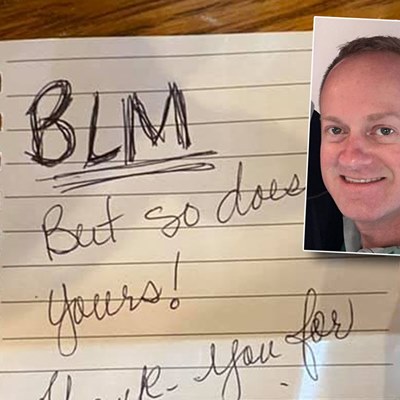 BLM
But so does
yours!
Thank-You for